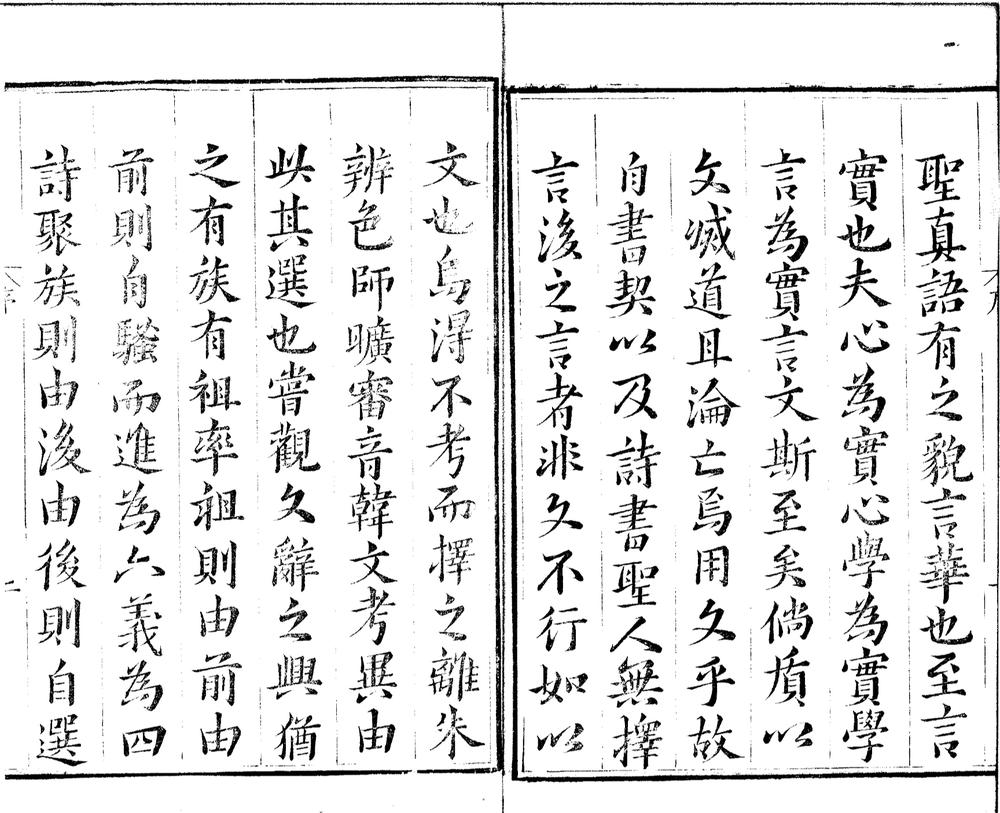 聖真語有之貌言華也至言
實也夫心為實心學為實學
言為實言文斯至矣倘質以
文滅道且淪亡烏用文乎故
自書契以及詩書聖人無擇
言後之言者非文不行如以
文也烏得不考而擇之離朱
辨色師曠審音韓文考異由
此其選也嘗觀文辭之興猶
之有族有祖率祖則由前由
前則自騷而進為六義為四
詩聚族則由後由後則自選